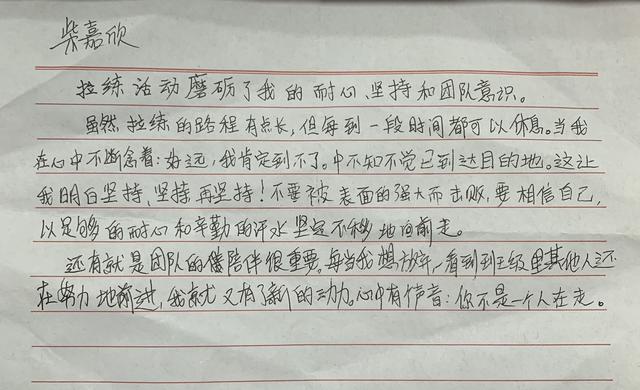 柴嘉欣
拉练活动磨砺了我的耐心、坚持和团队意识。
虽然拉练的路程有点长，但每到一段时间都可以休息。当我
在心中不断念着：好远，我肯定到不了。中不知不觉已到达目的地。这让
我明白坚持，坚持再坚持！不要被表面的强大而击败，要相信自己，
以足够的耐心和辛勤的汗水坚定不移地向前走。
还有就是团队的陪伴很重要。每当我想放弃，看到到班级里其他人还
在努力地前进，我就又有了新的动力。心中有个声音：你不是一个人在走。